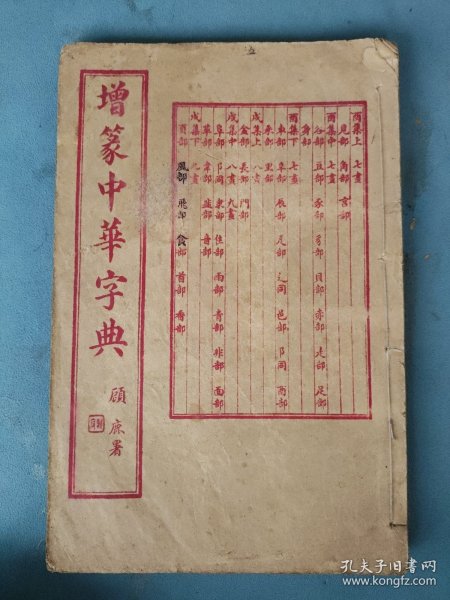 五
增篆中華字典
顧麻署
酉集上 七畫
見部 角部 言部
酉集中 七畫
谷部 豆部 豕部 豸部 貝部 赤部 走部 足部
身部
酉集下 七畫
車部 辛部 辰部 辵同辶 邑部 阝同 酉部
釆部 里部
戌集上 八畫
金部 長部 門部
戌集中 八畫 九畫
阜部 阝同 隶部 隹部 雨部 青部 非部 面部
革部 韋部 韭部 音部
戌集下 九畫
頁部 風部 飛部 食部 首部 香部
孔夫子旧书网
www.kongfz.com